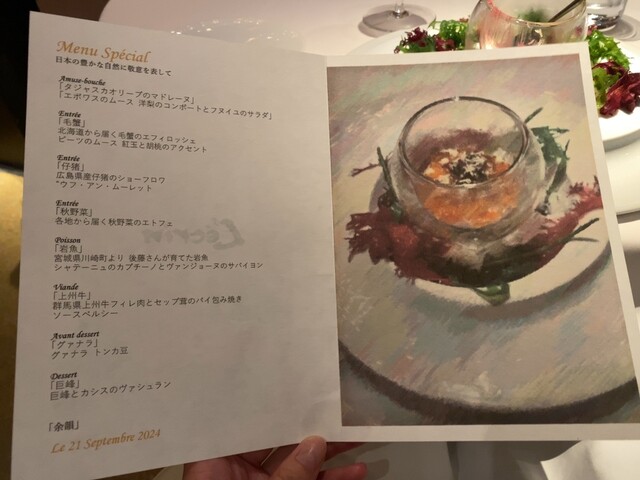 Menu Spécial
日本の豊かな自然に敬意を表して
Amuse-bouche
「タジャスカオリーブのマドレーヌ」
「エポワスのムース 洋梨のコンポートとフヌイユのサラダ」
Entrée
「毛蟹」
北海道から届く毛蟹のエフィロッシェ
ビーツのムース 紅玉と胡桃のアクセント
Entrée
「仔猪」
広島県産仔猪のショーフロワ
"ウフ・アン・ムーレット
Entrée
「秋野菜」
各地から届く秋野菜のエトフェ
Poisson
「岩魚」
宮城県川崎町より 後藤さんが育てた岩魚
シャテーニュのカプチーノとヴァンジョーヌのサバイヨン
Viande
「上州牛」
群馬県上州牛フィレ肉とセップ茸のパイ包み焼き
ソースペルシー
Avant dessert
「グァナラ」
グァナラ トンカ豆
Dessert
「巨峰」
巨峰とカシスのヴァシュラン
「余韻」
Le 21 Septembre 2024